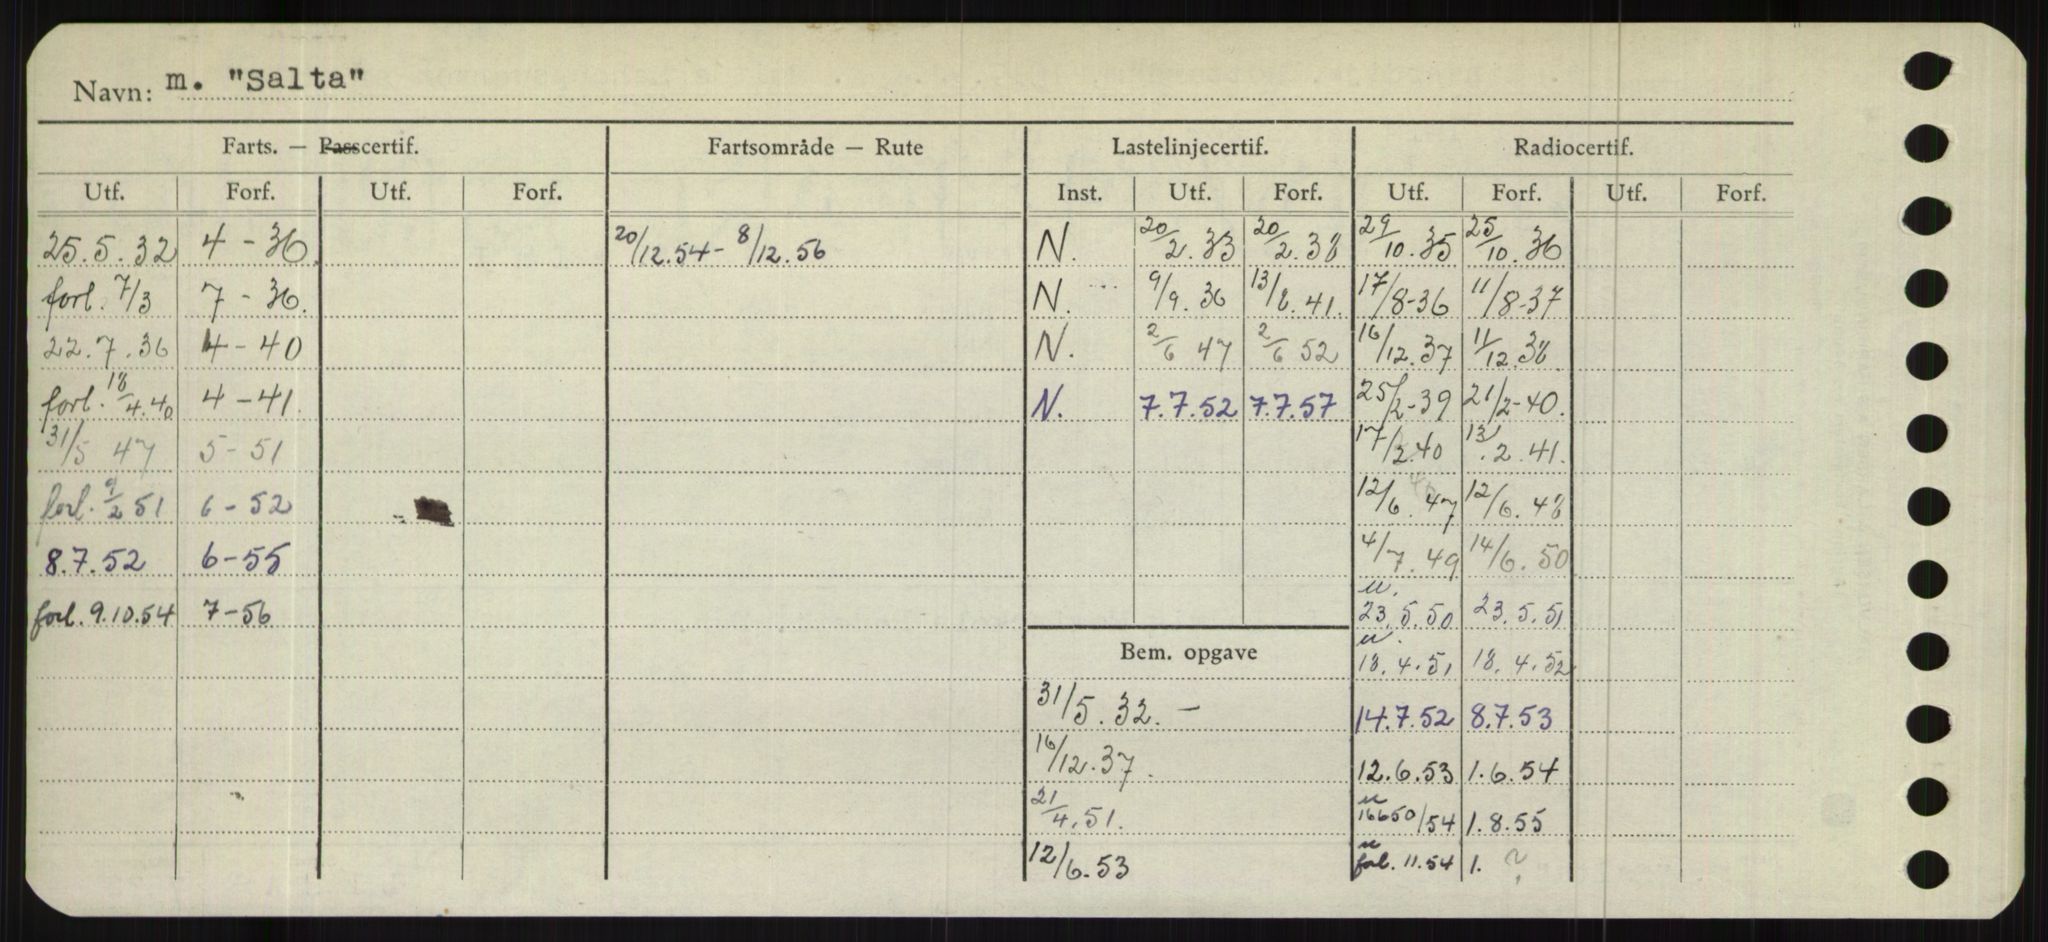 Navn: m. "Salta"
Farts. — Passcertif. Fartsområde — Rute Lastelinjecertif. Radiocertif.
Utf. Forf. Utf. Forf. Inst. Utf. Forf. Utf. Forf. Utf. Forf.
25.5.32 4-36. 20/12.54 - 8/12.56 N. 20/2.33 20/2.38 29/10.35 25/10.36
forl. 7/3 7-36. N. 9/9.36 13/8.41. 17/8-36 11/8-37
22.7.36 4-40 N. 2/6 47 2/6 52 16/12.37 11/12.38
forl. 18/4.40 4-41. N. 7.7.52 7.7.57 25/2-39 21/2-40.
31/5 47 5-51 17/2.40 13/.2.41.
forl. 9/2 51 6-52 12/6.47 12/6.48
8.7.52 6-55 4/7.49 14/6.50
forl. 9.10.54 7-56 u. 23.5.50 23.5.51
Bem. opgave u. 18.4.51 18.4.52
31/5.32. — 14.7.52 8.7.53
16/12.37. 12.6.53 1.6.54
21/4.51. u 16650/54 1.8.55
12/6.53 u forl. 11.54 1. ?